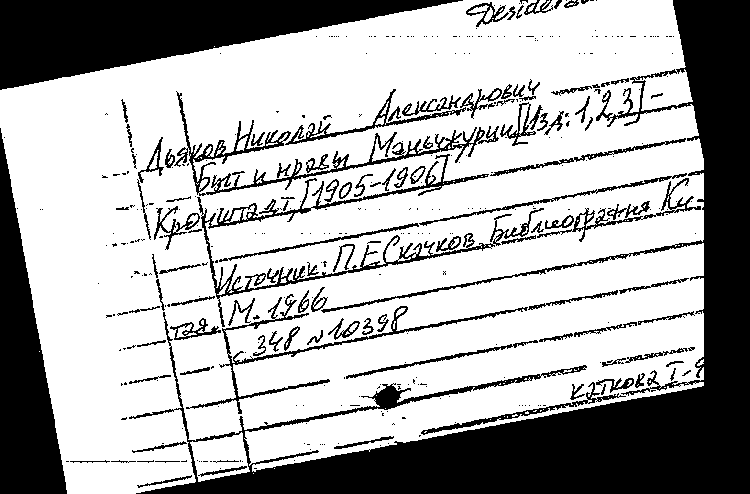 Desidera
Дьяков, Николай Александрович
Быт и нравы Маньчжурии [Изд: 1, 2, 3] –
Кронштадт, [1905-1906]
Источник: П.Е.Скачков Библиография Ки-
тая. М. 1966
с. 348, № 10398
Каткова Т-